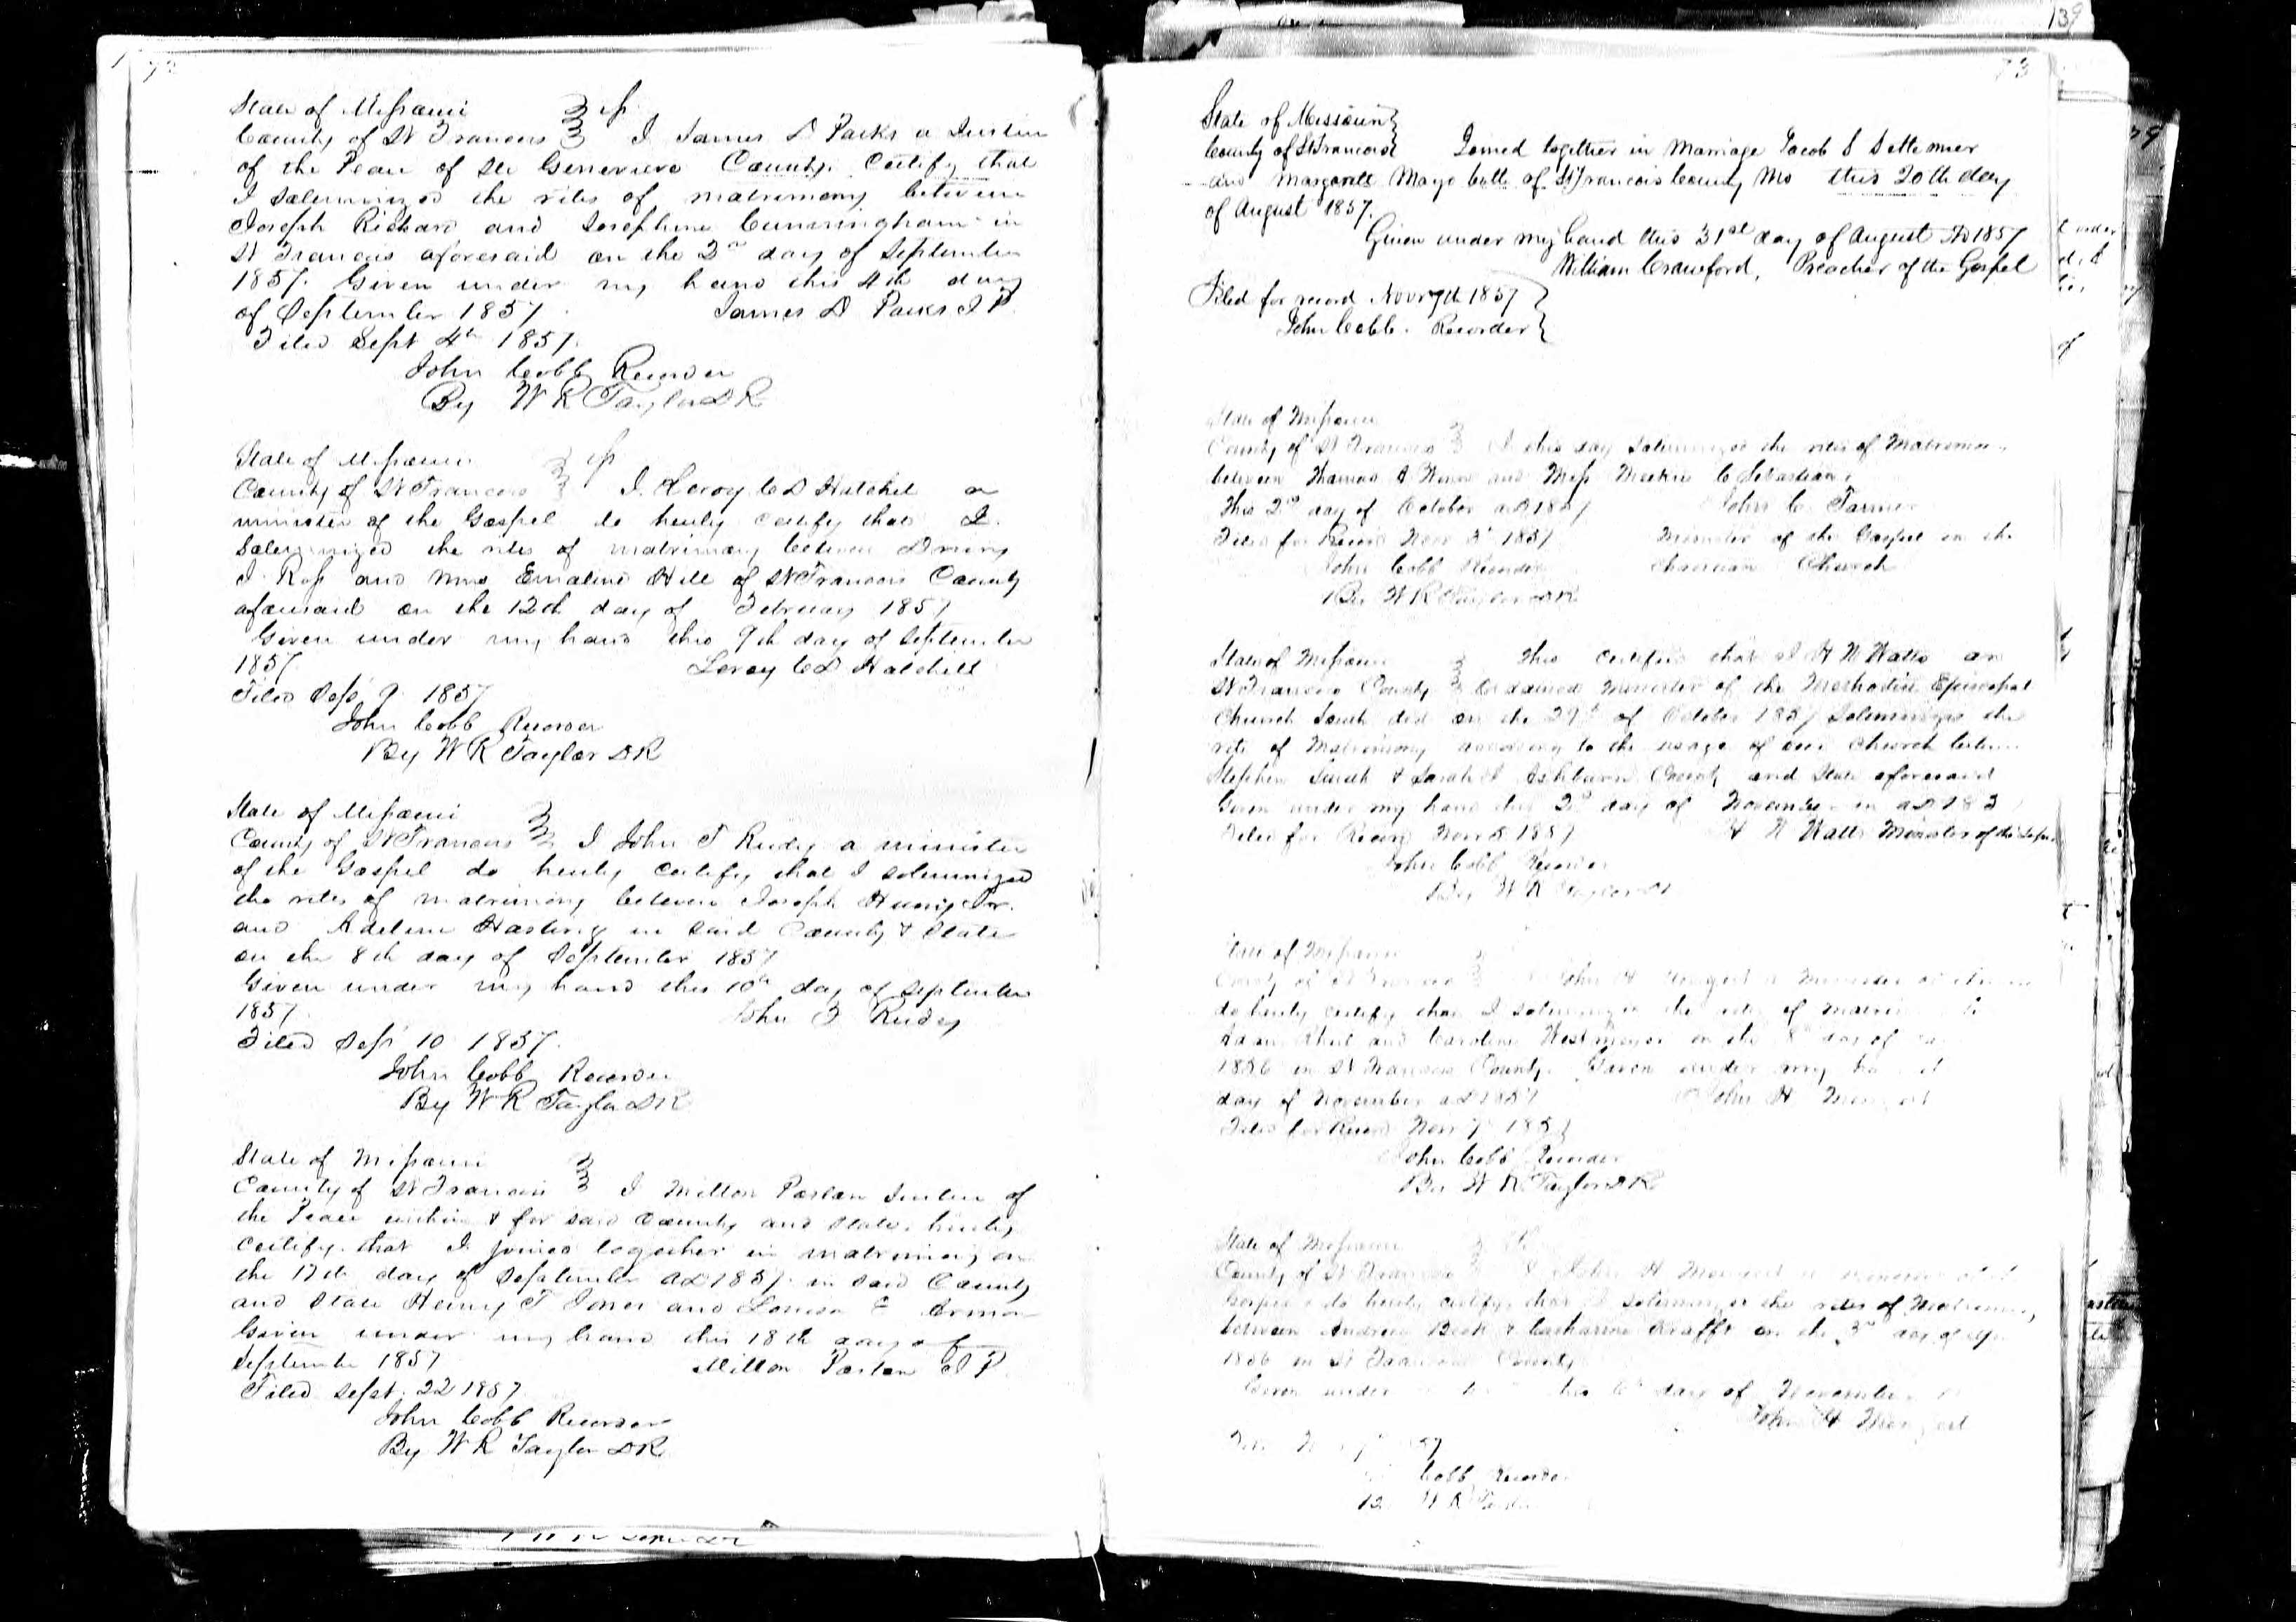 72
State of Missouri
County of St Francois I James D Parks a Justice
of the Peace of Ste Genevieve County. Certify that
I Solemnized the rites of matrimony between
Joseph Richard and Josephine Cunningham in
St Francois aforesaid on the 2nd day of September
1857. Given under my hand this 4th day
of September 1857. James D Parks J P.
Filed Sept 4th 1857.
John Cobb Recorder
By W R Taylor D R
State of Missouri
County of St Francois I. Leroy C D Hatchel a
minister of the Gospel do hereby certify that I.
Solemnized the rites of matrimony between Drury
J. Ross and Mrs Emaline Hill of St Francois County
aforesaid on the 12th day of February 1857
Given under my hand this 9th day of September
1857. Leroy C D Hatchell
Filed Sept 9 1857
John Cobb Recorder
By W R Taylor D R
State of Missouri
County of St Francois I John T Rudy a minister
of the Gospel do hereby certify that I solemnized
the rites of matrimony between Joseph
and Adeline Hasting in said County & State
on the 8th day of September 1857
Given under my hand this 10th day of September
1857. John T Rudy
Filed Sept 10 1857.
John Cobb Recorder
By W R Taylor D R
State of Missouri
County of St Francois I Milton Justice of
the Peace within & for said County and State. hereby
certify that I joined together in matrimony on
the 17th day of September AD 1857. in said County
and State Henry T Jones and Louisa E
Given under my hand this 18th day of
September 1857 Milton J P.
Filed Sept. 22 1857.
John Cobb Recorder
By W R Taylor D R
139
73
State of Missouri
County of St Francois Joined together in Marriage Jacob S Settemier
and Margarett Mayo both of St Francois County Mo this 20th day
of August 1857.
Given under my hand this 31st day of August AD 1857
William Crawford, Preacher of the Gospel
Filed for record Novr 7th 1857
John Cobb. Recorder
State of Missouri
County of St Francois I this day Solemnized the rites of Matrimony
between Thomas A and Miss C Sebastian.
This 2nd day of October AD 1857 John C. Farmer
Filed for Record Novr 3d 1857 Minister of the Gospel in the
John Cobb Recorder Christian Church
By W R Taylor D R
State of Missouri This certifies that I H N Watts an
St Francois County Ordained Minister of the Methodist Episcopal
Church South did on the 29th of October 1857 Solemnize the
rite of Matrimony according to the usage of our Church between
Stephen Smith & Sarah J Ashburn County and State aforesaid
Given under my hand this 2nd day of November in AD 185
Filed for Record Novr 5 1857 H N Watts Minister of the Gospel
John Cobb Recorder
By W R Taylor D R
State of Missouri
County of St Francois I John H a Minister
do hereby certify that I solemnized the rites of
Adam and Caroline Westmeyer on the 8th day of
1856 in St Francois County. Given under my
day of November AD 1857 John H
Filed for Record Novr 7 1857
John Cobb Recorder
By W R Taylor D R
State of Missouri
County of St Francois I John H a minister of the
Gospel do hereby certify that I solemnized the rites of Matrimony
between Andrew Beck & Catharine Krafft on the 3rd day of
1856 in St Francois County
Given under this 6th day of November
John H
57
Cobb Recorder
W R